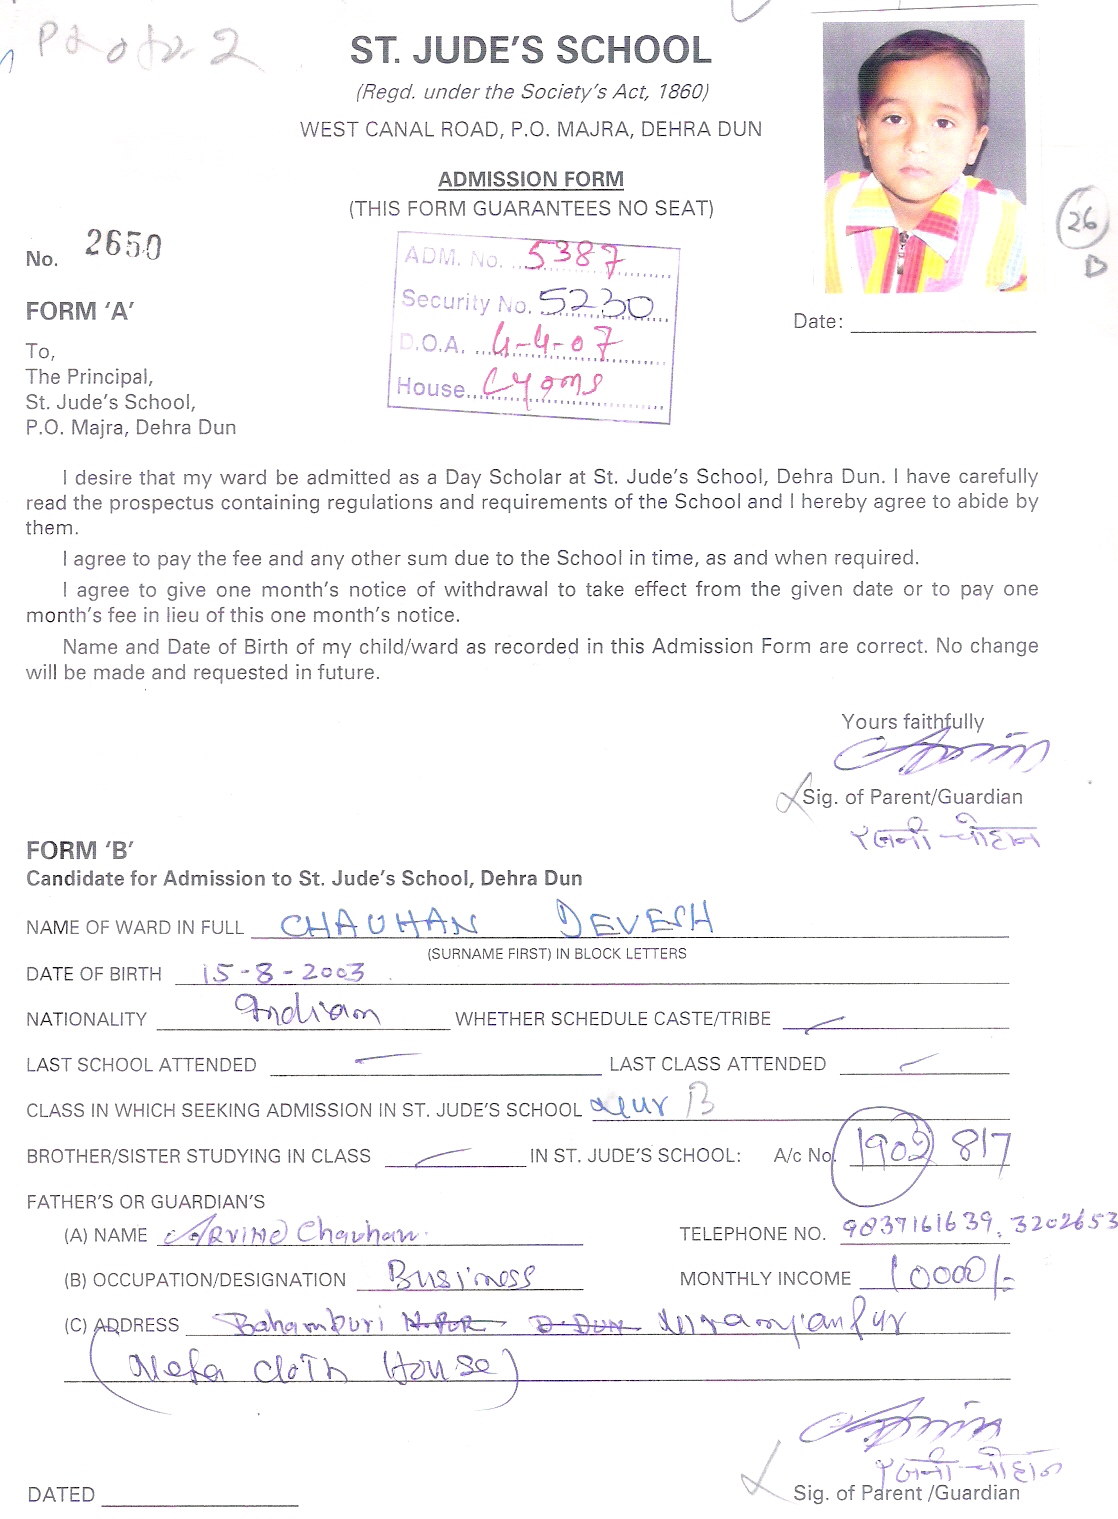 ST. JUDE'S SCHOOL
(Regd. under the Society's Act, 1860)
WEST CANAL ROAD, P.O. MAJRA, DEHRA DUN
ADMISSION FORM
(THIS FORM GUARANTEES NO SEAT)
26
D
No. 2650
ADM. No. 5387
Security No. 5230
D.O.A. 4-4-07
House Lyons
FORM 'A'
Date:
To,
The Principal,
St. Jude's School,
P.O. Majra, Dehra Dun
I desire that my ward be admitted as a Day Scholar at St. Jude's School, Dehra Dun. I have carefully
read the prospectus containing regulations and requirements of the School and I hereby agree to abide by
them.
I agree to pay the fee and any other sum due to the School in time, as and when required.
I agree to give one month's notice of withdrawal to take effect from the given date or to pay one
month's fee in lieu of this one month's notice.
Name and Date of Birth of my child/ward as recorded in this Admission Form are correct. No change
will be made and requested in future.
Yours faithfully
Sig. of Parent/Guardian
रजनी चौहान
FORM 'B'
Candidate for Admission to St. Jude's School, Dehra Dun
NAME OF WARD IN FULL CHAUHAN DEVESH
(SURNAME FIRST) IN BLOCK LETTERS
DATE OF BIRTH 15-8-2003
NATIONALITY Indian WHETHER SCHEDULE CASTE/TRIBE
LAST SCHOOL ATTENDED LAST CLASS ATTENDED
CLASS IN WHICH SEEKING ADMISSION IN ST. JUDE'S SCHOOL Nur B
BROTHER/SISTER STUDYING IN CLASS IN ST. JUDE'S SCHOOL: A/c No. 1902 817
FATHER'S OR GUARDIAN'S
(A) NAME ARVIND Chauhan TELEPHONE NO. 9837161639, 3202653
(B) OCCUPATION/DESIGNATION Business MONTHLY INCOME 10000/-
(C) ADDRESS Bahamburi N.PUR D.DUN Niranjanpur
(Neha Cloth House)
रजनी चौहान
DATED Sig. of Parent/Guardian